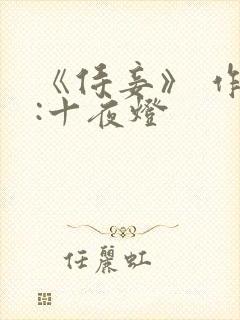 《侍妾》 作
:十夜燈
任麗虹